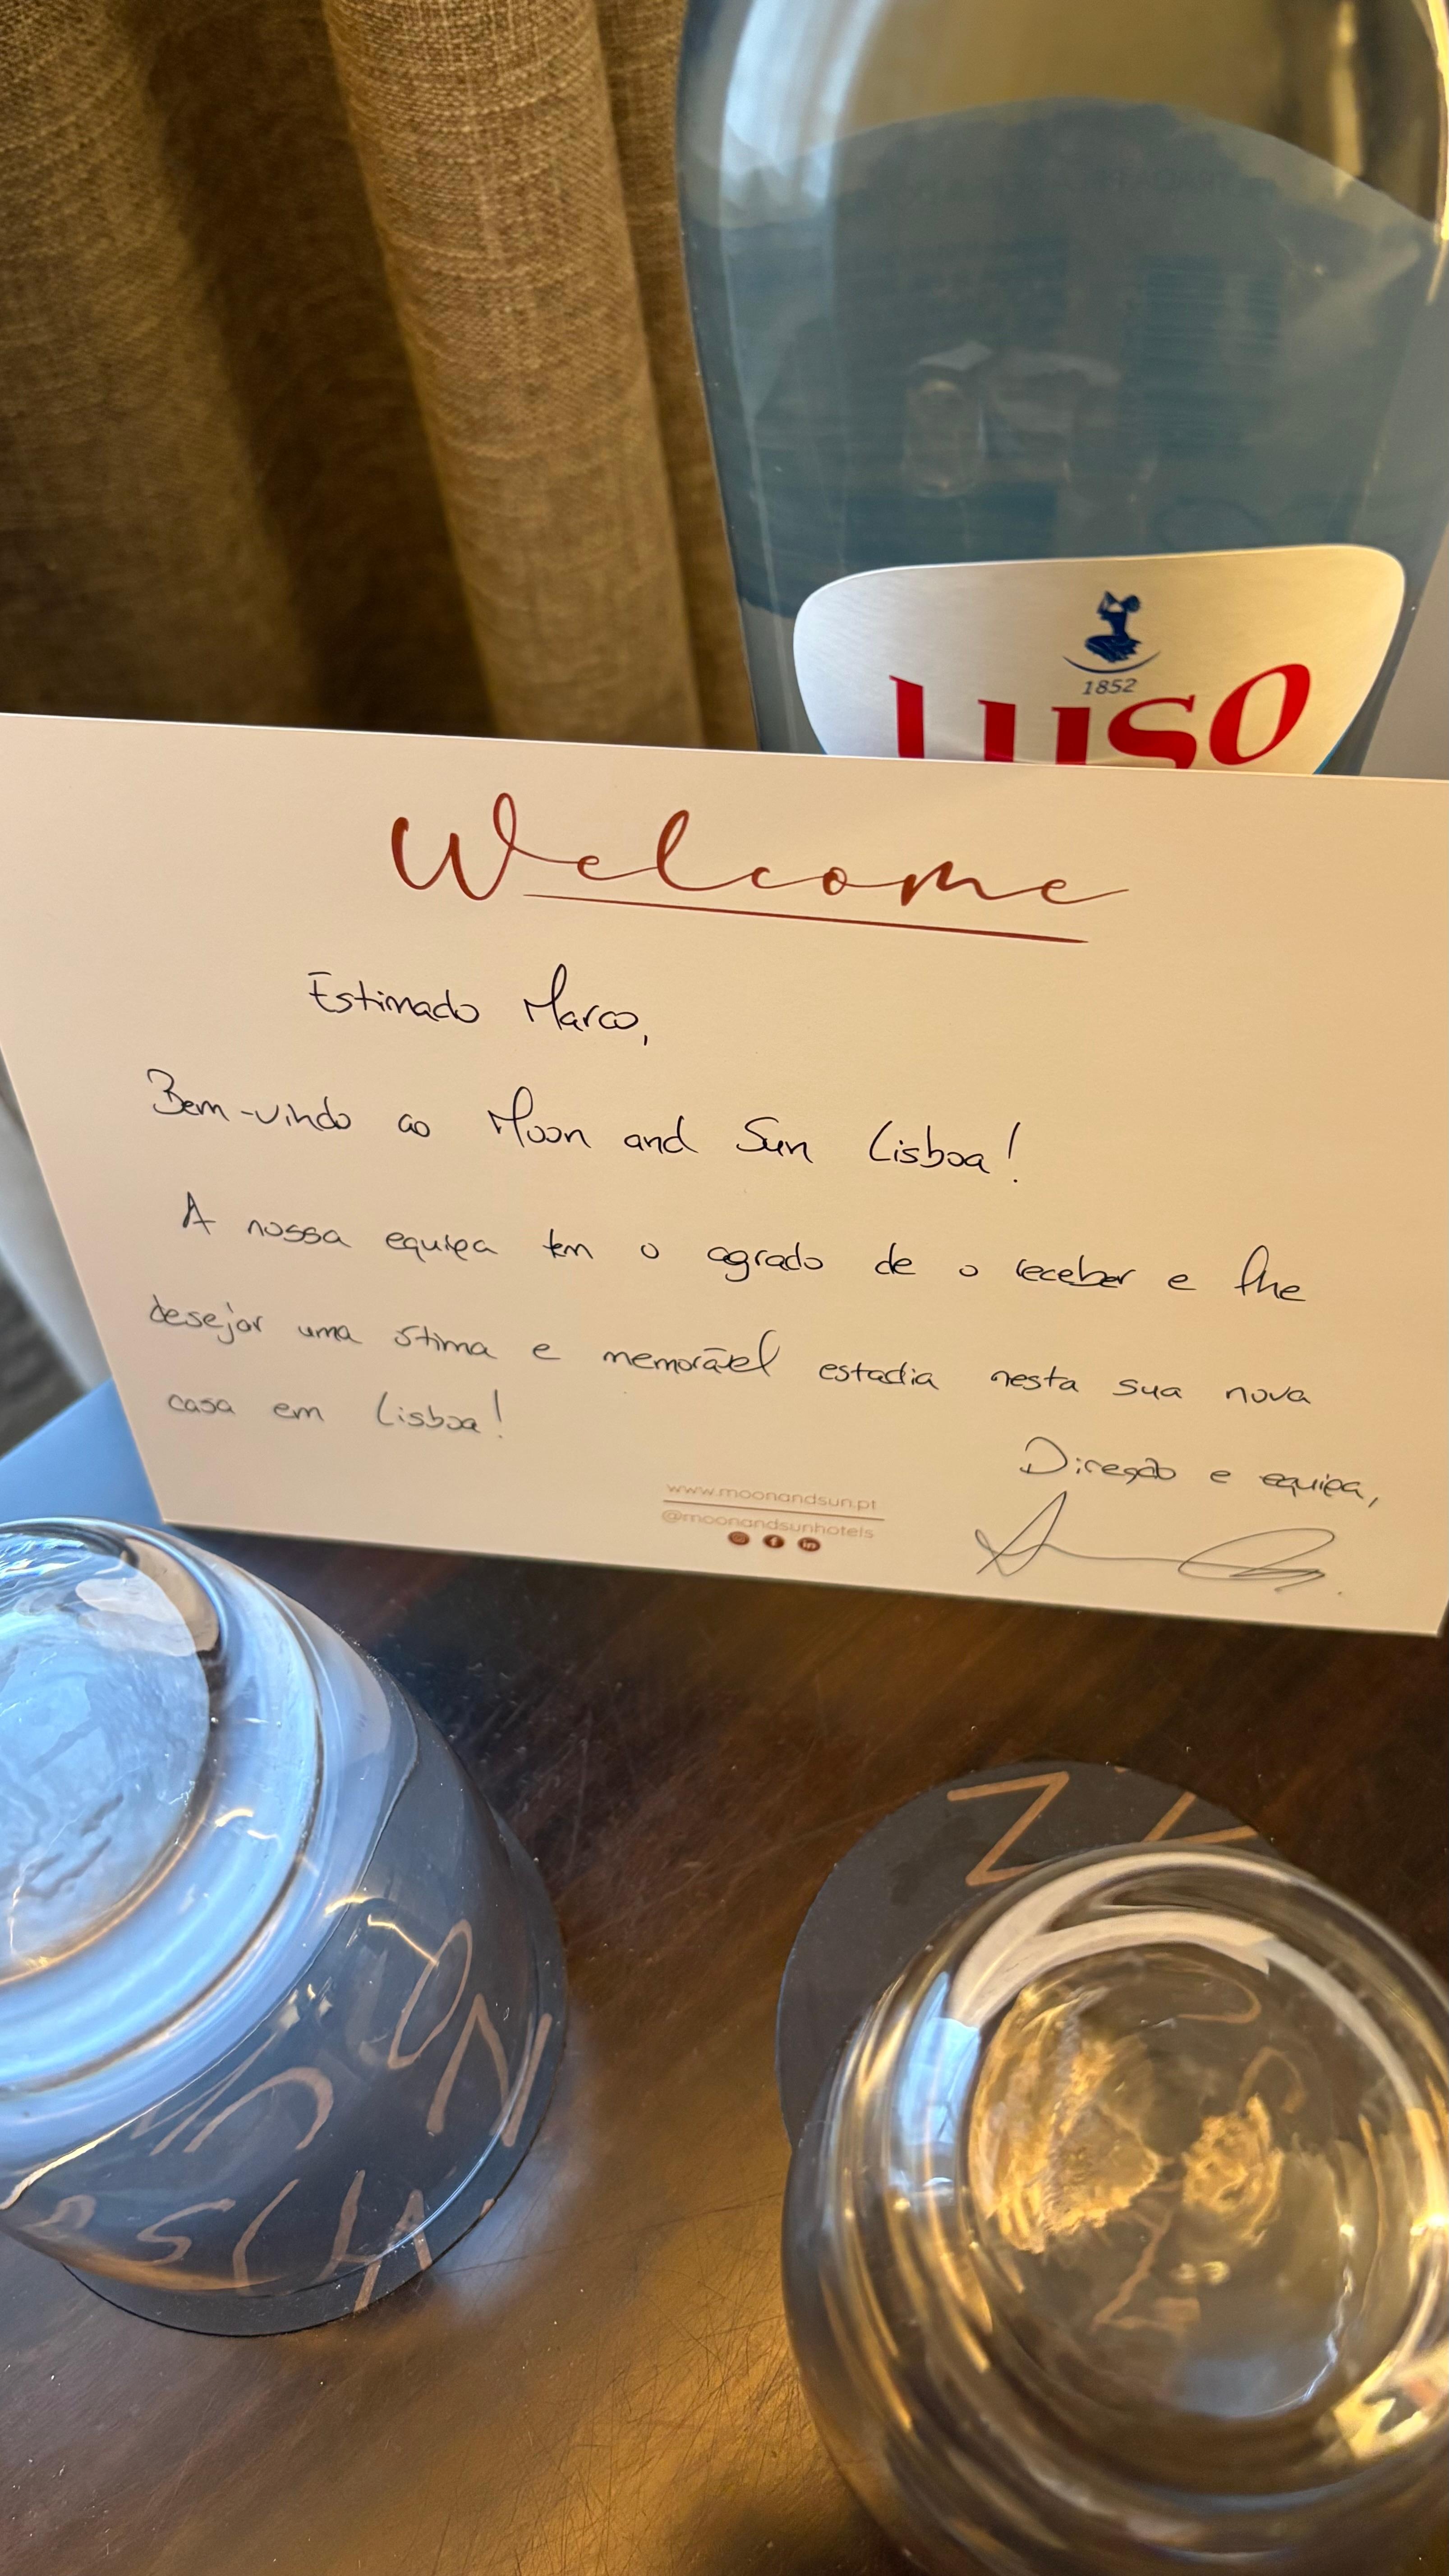 1852
LUSO
Welcome
Estimado Marco,
Bem-vindo ao Moon and Sun Lisboa!
A nossa equipa tem o agrado de o receber e lhe
desejar uma ótima e memorável estadia nesta sua nova
casa em Lisboa!
Direção e equipa,
www.moonandsun.pt
@moonandsunhotels